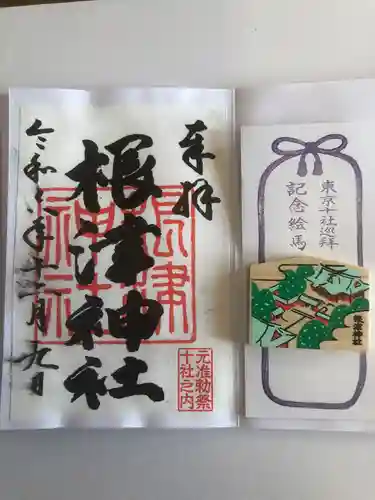 奉拝
根津神社
令和六年十一月九日
根津
神社
元准勅祭
十社之内
東京十社巡拝
記念絵馬
根津神社